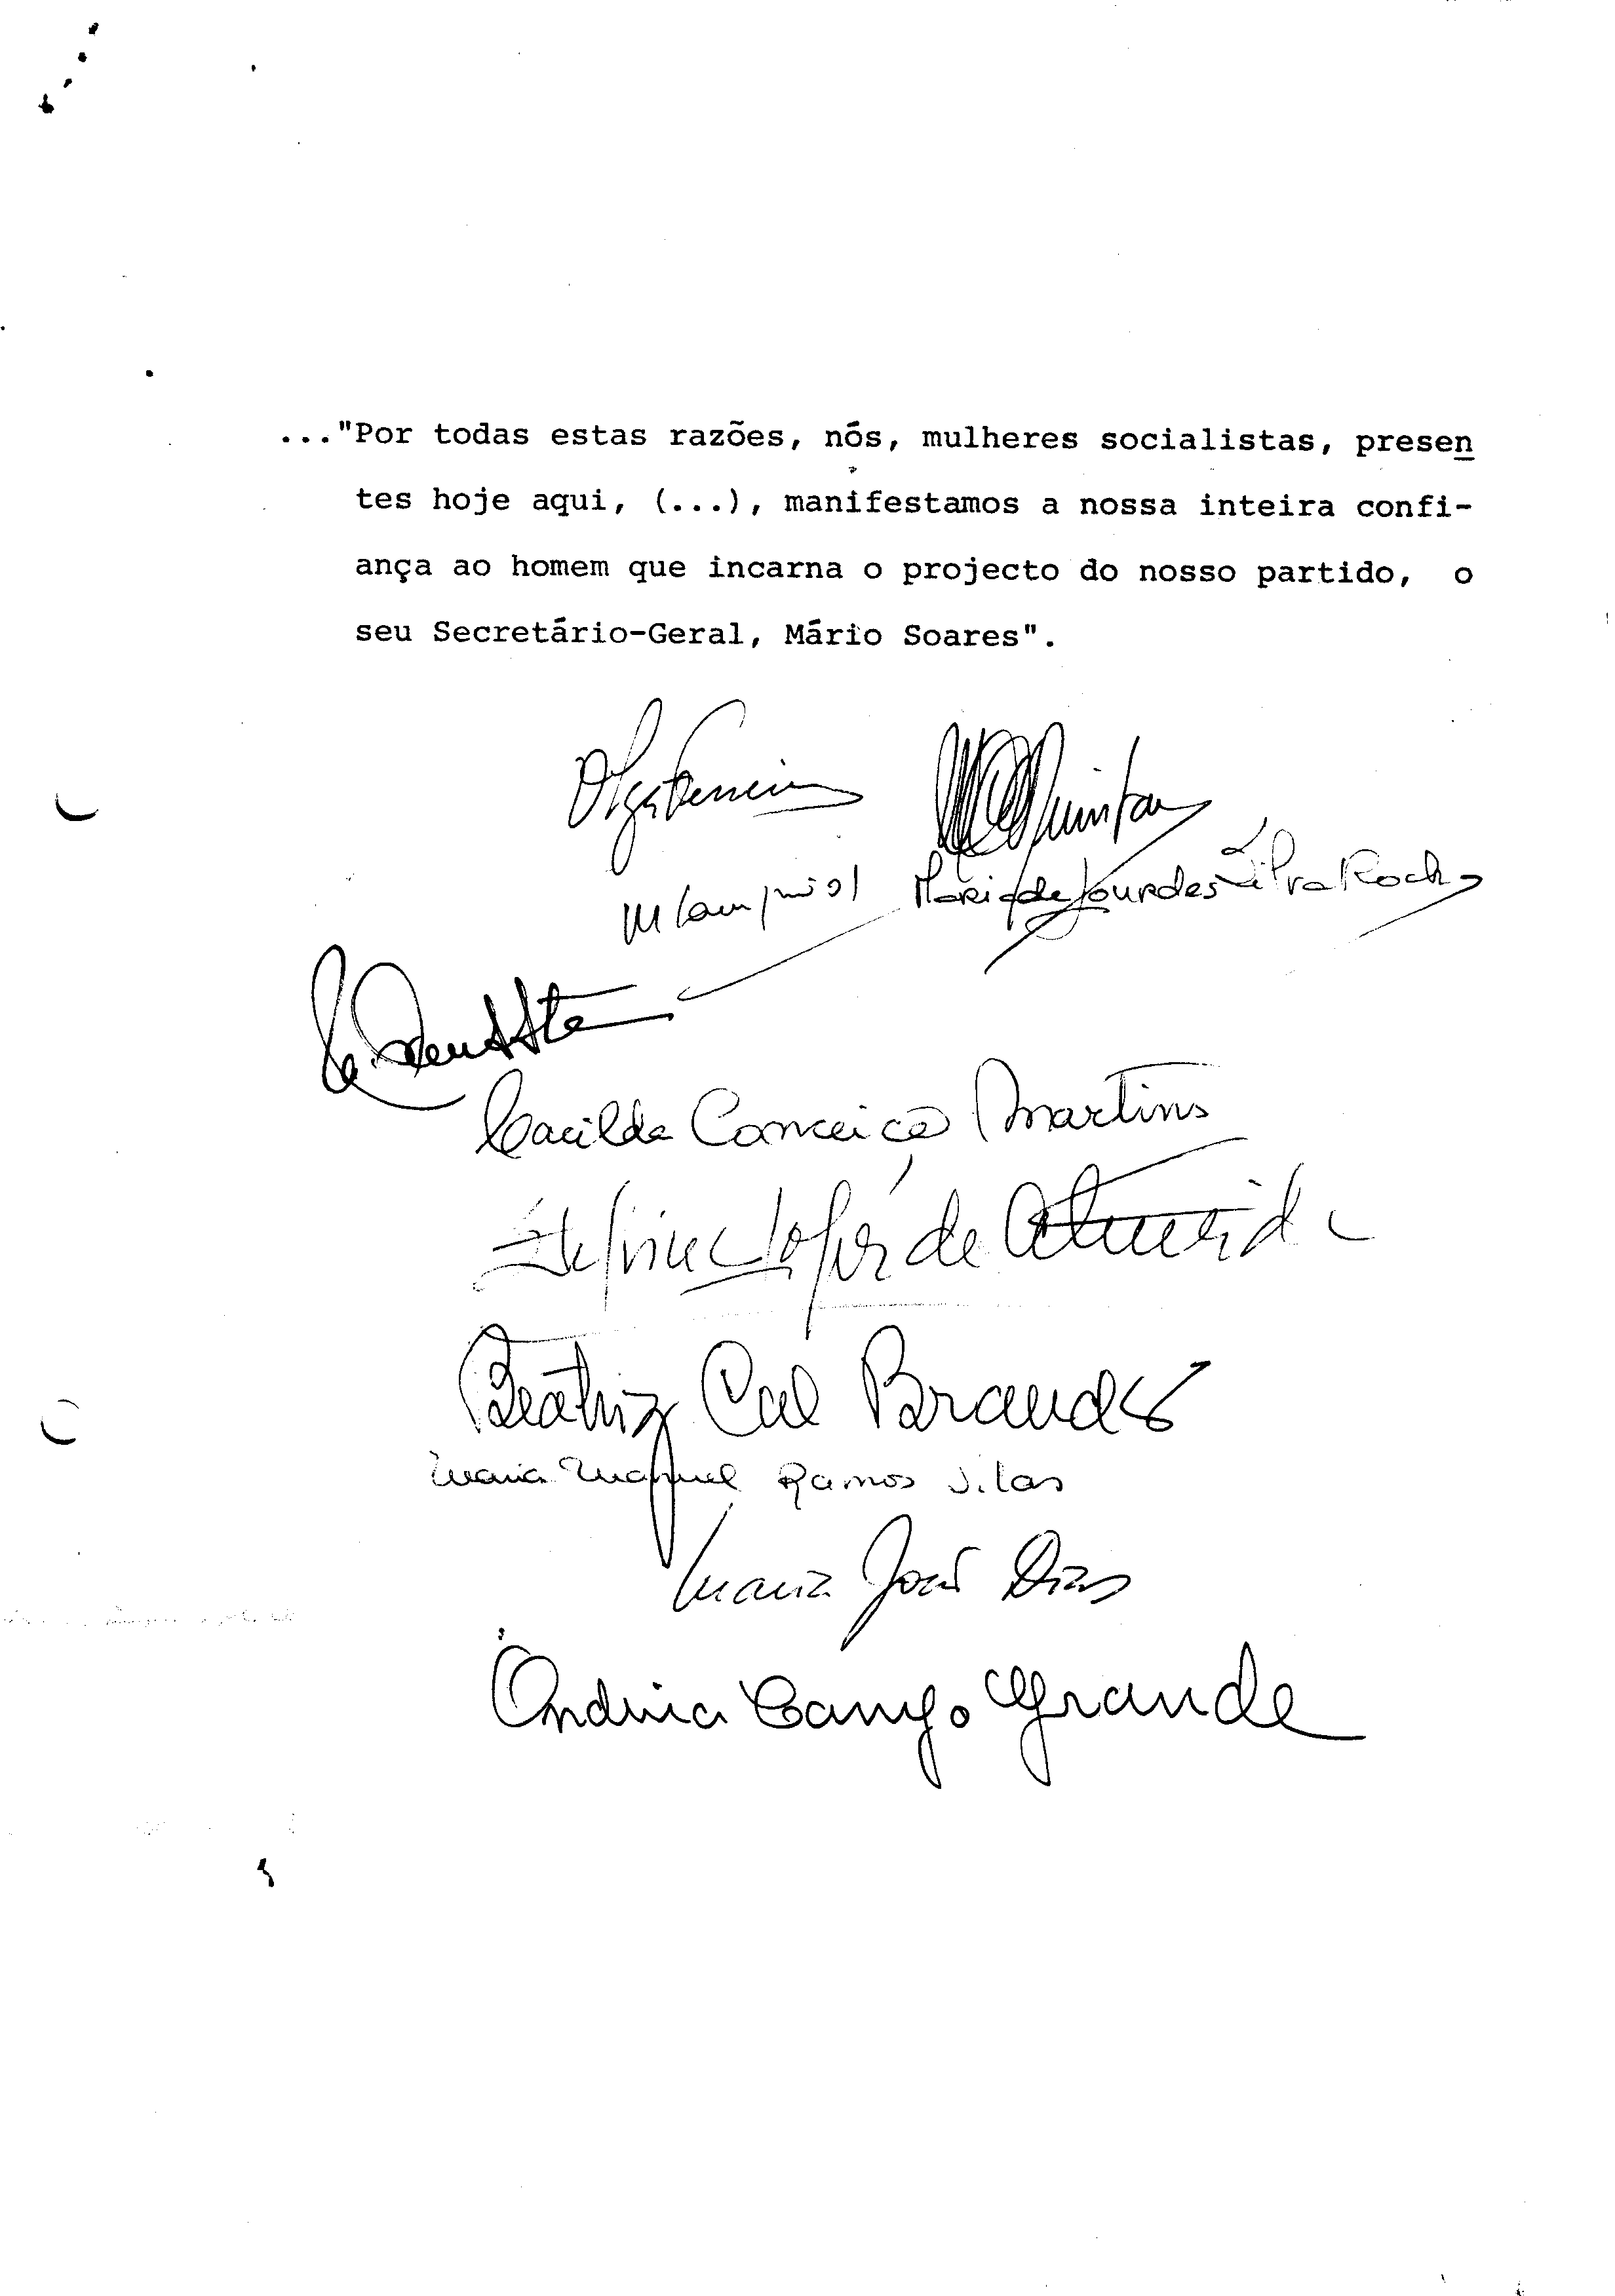 ..."Por todas estas razões, nós, mulheres socialistas, presen
tes hoje aqui, (...), manifestamos a nossa inteira confi-
ança ao homem que incarna o projecto do nosso partido, o
seu Secretário-Geral, Mário Soares".
Olga Ferreira
Quintas
Maria de Lourdes Silva Rocha
Cacilda Conceição Martins
Lopes de Almeida
Beatriz Cal Brandão
Maria Manuel Ramos Vilas
Maria José Dias
Ondina Campo Grande